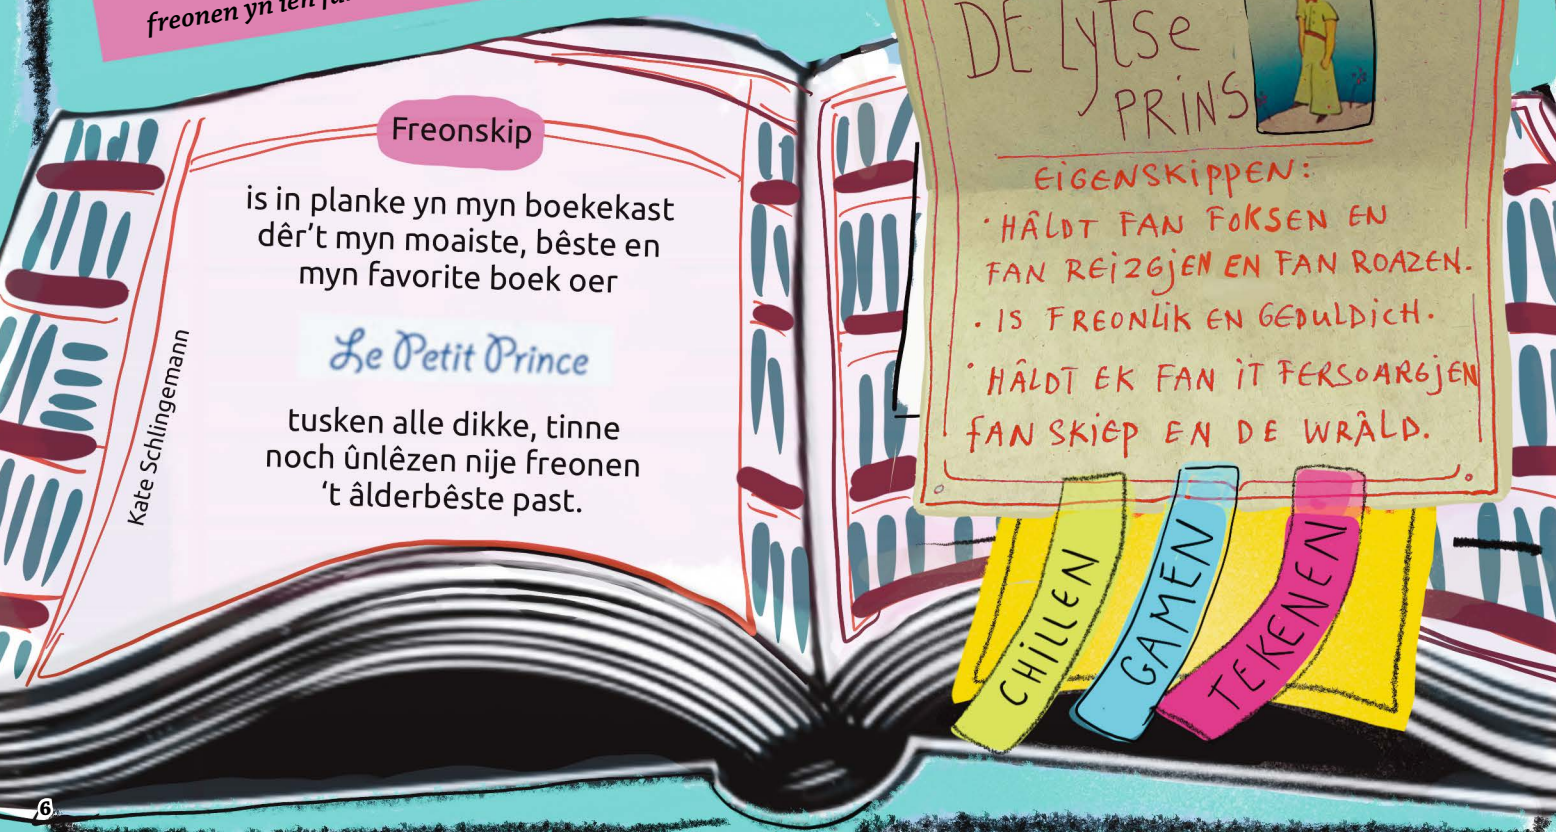 freonen yn ien
Freonskip
is in planke yn myn boekekast
dêr’t myn moaiste, bêste en
myn favorite boek oer
Le Petit Prince
tusken alle dikke, tinne
noch ûnlêzen nije freonen
‘t âlderbêste past.
Kate Schlingemann
6
DE LyTSe
PRiNS
EiGENSKiPPEN:
· HÂLDT FAN FOKSEN EN
FAN REiZGjEN EN FAN ROAZEN.
· IS FREONLiK EN GEDULDiCH.
· HÂLDT EK FAN iT FERSOARGjEN
fAN SKiEP EN DE WRÂLD.
CHiLLEN
GAMEN
TEKENEN